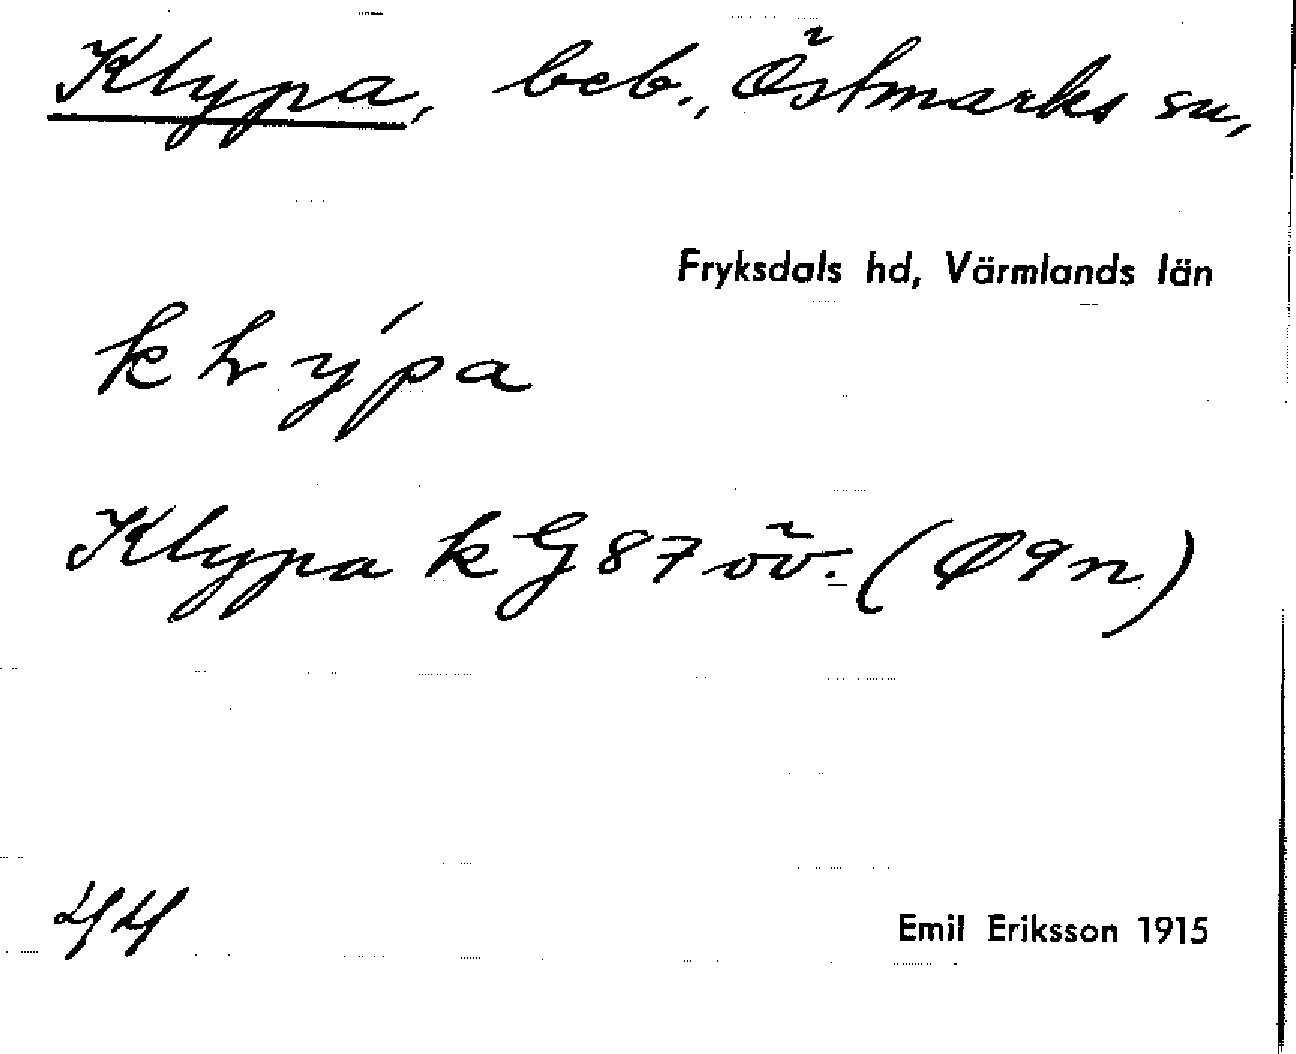 Klypa, beb., Östmarks sn,
Fryksdals hd, Värmlands län
Klypa k G 87 öv. (Ø9n)
44
Emil Eriksson 1915